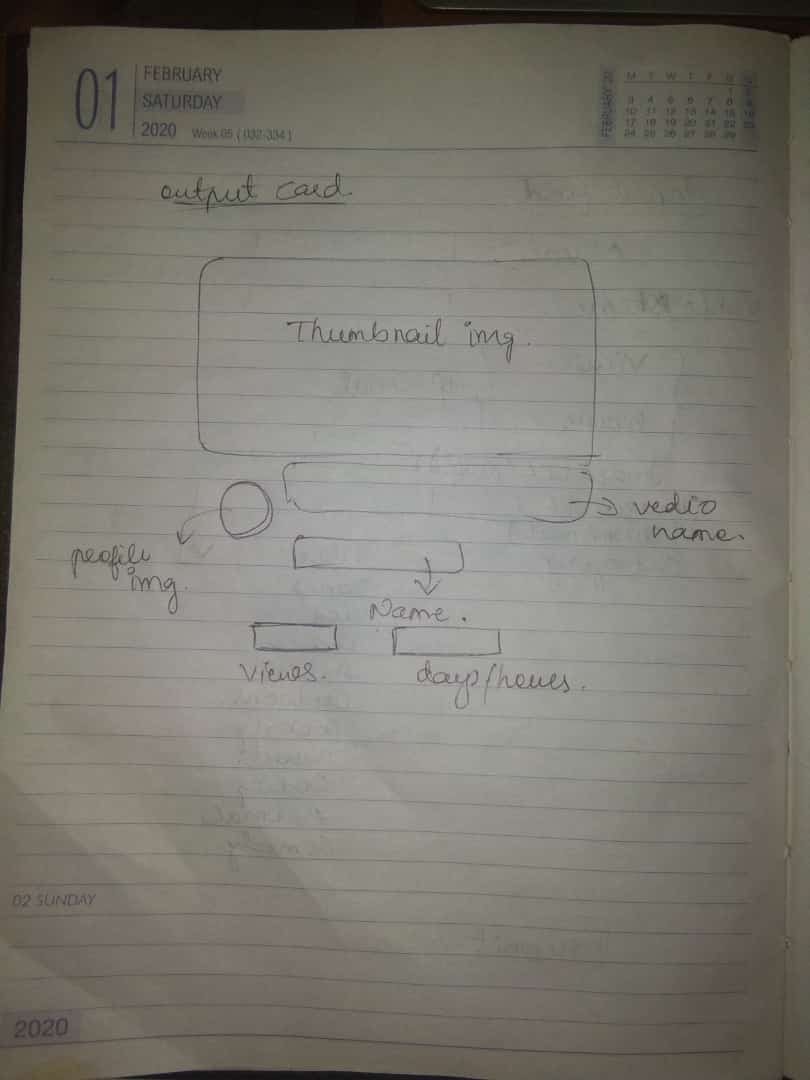 01
FEBRUARY
SATURDAY
2020 Week 05 (032-334)
FEBRUARY 20
M T W T F S S
1 2
3 4 5 6 7 8 9
10 11 12 13 14 15 16
17 18 19 20 21 22 23
24 25 26 27 28 29
output card.
Thumbnail img.
vedio
name.
profile
img.
Name.
views.
days/hours.
02 SUNDAY
2020